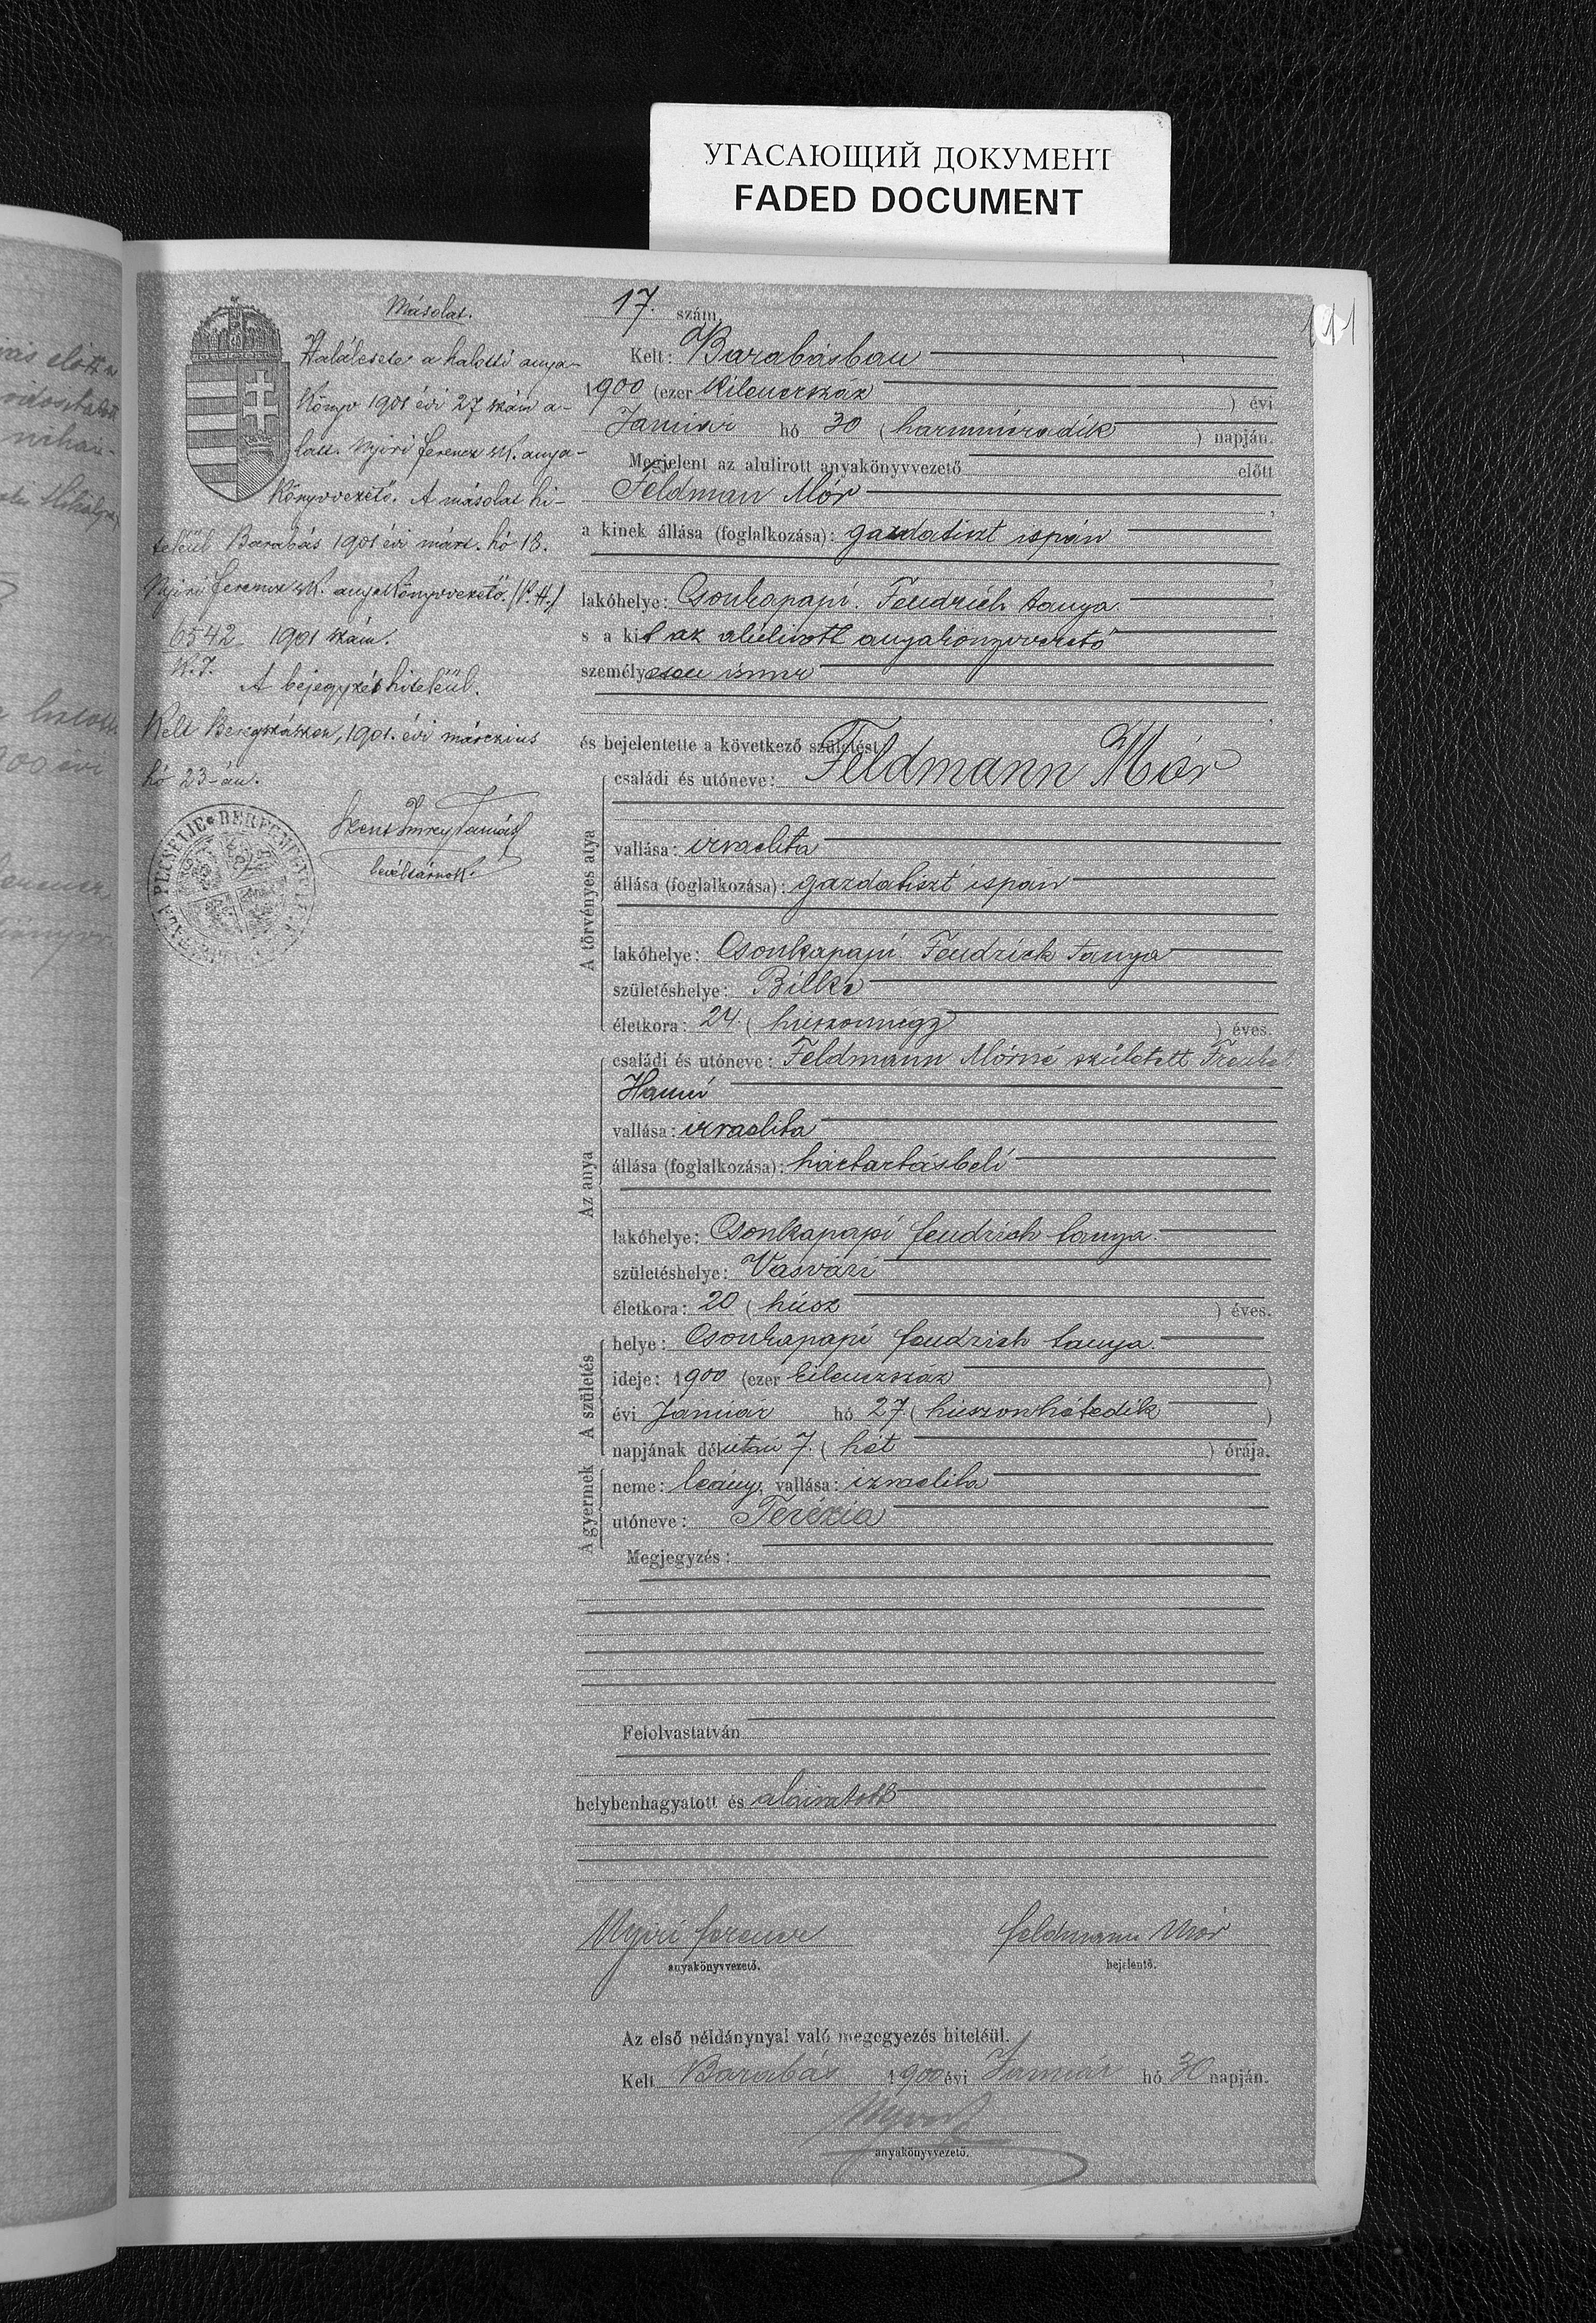 УГАСАЮЩИЙ ДОКУМЕНТ
FADED DOCUMENT
111
Másolat.
Halálesete a halotti anya-
könyv 1901 évi 27 szám a-
latt. Nyiri Ferencz sk. anya-
könyvvezető. A másolat hi-
teléül Barabás 1901 évi márt. hó 18.
Nyiri Ferencz sk. anyakönyvvezető. (P.H.)
6542 1901 szám.
A bejegyzés hiteléül.
Kelt Beregszászon, 1901. évi március
hó 23-án.
Szent Imrey Tamás
levéltárnok.
17. szám.
Kelt: Barabásban
1900 (ezer kilenczszáz ) évi
Januári hó 30 (harminczadik ) napján.
Megjelent az alulirott anyakönyvvezető előtt
Feldman Mór,
a kinek állása (foglalkozása): gazdatiszt ispán
lakóhelye: Csonkapapi. Fendrich tanya.
s a kit az alulirott anyakönyvvezető
személyesen ismer
és bejelentette a következő születést
A törvényes atya
családi és utóneve: Feldmann Mór
vallása: izraelita
állása (foglalkozása): gazdatiszt ispán
lakóhelye: Csonkapapi Fendrich tanya
születéshelye: Bilke
életkora: 24. (huszonnégy ) éves.
Az anya
családi és utóneve: Feldmann Mórné született
Hanni
vallása: izraelita
állása (foglalkozása): háztartásbeli
lakóhelye: Csonkapapi fendrich tanya.
születéshelye: Vásvári
életkora: 20 (húsz ) éves.
A születés
helye: Csonkapapi fendrich tanya.
ideje: 1900 (ezer kilenczszáz )
évi Január hó 27. (huszonhetedik )
napjának délutáni 7. (hét ) órája.
A gyermek
neme: leány, vallása: izraelita
utóneve: Terézia
Megjegyzés:
Felolvastatván
helybenhagyatott és aláiratott
Nyiri Ferencz
anyakönyvvezető.
Feldmann Mór
bejelentő.
Az első példánynyal való megegyezés hiteléül.
Kelt Barabás 1900 évi Január hó 30 napján.
Nyiri
anyakönyvvezető.